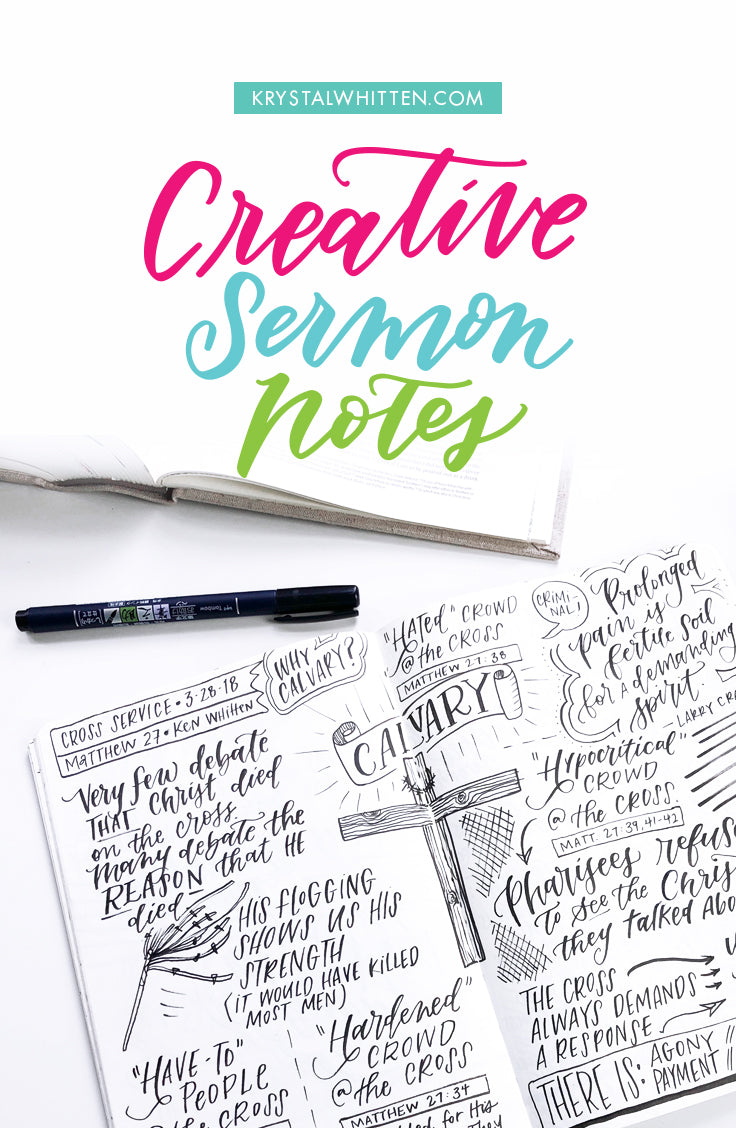 KRYSTALWHITTEN.COM
Creative
Sermon
Notes
Tombow
WHY
CALVARY?
CROSS SERVICE • 3-28-18
Matthew 27 • Ken Whitten
Very few debate
THAT Christ died
on the cross.
Many debate the
REASON that HE
died
HIS FLOGGING
SHOWS US HIS
STRENGTH
(IT WOULD HAVE KILLED
MOST MEN)
"HAVE-TO"
PEOPLE
@ the CROSS
"Hardened"
CROWD
@ the CROSS
MATTHEW 27:34
for His
They
CALVARY
"HATED" CROWD
@ the CROSS
MATTHEW 27:38
CRIMI-
NAL!
Prolonged
pain is
fertile soil
for a demanding
spirit
LARRY CR
"Hypocritical"
CROWD
@ the CROSS.
MATT. 27:39, 41-42
Pharisees refuse
to see the Chris
they talked Abo
THE CROSS
ALWAYS DEMANDS
A RESPONSE
THERE IS: AGONY //
PAYMENT //